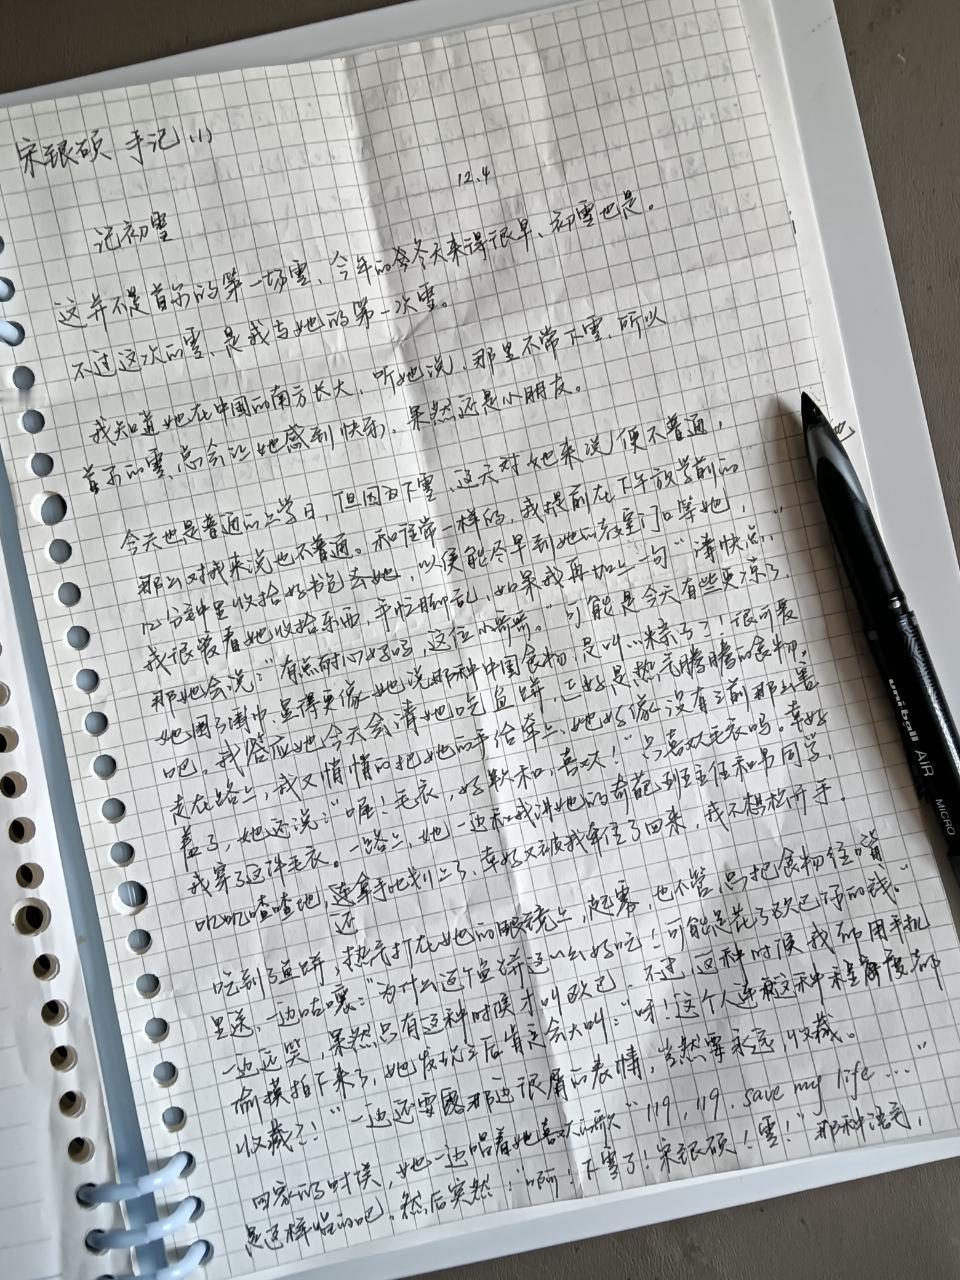 宋银硕 手记 (1)
12.4
记初雪
这并不是首尔的第一场雪、今年的冬天来得很早、初雪也是。
不过这次的雪、是我与她的第一次雪。
我知道她在中国的南方长大、听她说、那里不常下雪、所以
首尔的雪、总会让她感到快乐、果然还是小朋友。
今天也是普通的上学日，但因为下雪、这天对她来说便不普通，
那么对我来说也不普通。和往常一样的，我提前在下午放学前的
10分钟里收拾好书包去她，以便能尽早到她的教室门口等她，
我很爱看她收拾东西，手忙脚乱，如果我再加上一句“请快点”
那她会说：“有点耐心好吗，这位小哥哥。”可能是今天有些更凉了，
她围了围巾、显得更像她说那种中国食物，是叫…粽子？！很可爱
吧，我答应她今天会请她吃鱼饼，正好是热气腾腾的食物。
走在路上，我又悄悄的把她的手给牵上、她好像没有之前那么害
羞了，她还说“喔！毛衣，好软和，喜欢！”只喜欢毛衣吗。幸好
我穿了这件毛衣。一路上，她一边和我讲她的奇葩班主任和男同学，
叽叽喳喳地，连拿手比划上了，幸好又被我牵住了回来，我不想松开手。
还
吃到了鱼饼，热气打在她的眼镜上，起雾，也不管，只把食物往嘴
里送，一边咕囔：“为什么这个鱼饼这么好吃！可能是花了欧巴你的钱。”
一边还笑，果然只有这种时候才叫欧巴、不过，这种时候我都用手机
偷摸拍下来了，她发现之后肯定会大叫：“呀！这个人连这种程度都
收藏？！”一边还要露那边很屑的表情，当然要永远收藏。
回家的时候，她一边唱着她喜欢的歌“119，119. save my life ...”
是这样唱的吧，然后突然：“啊！下雪了！宋银硕！雪！”那种语气，
uni-ball AIR MICRO